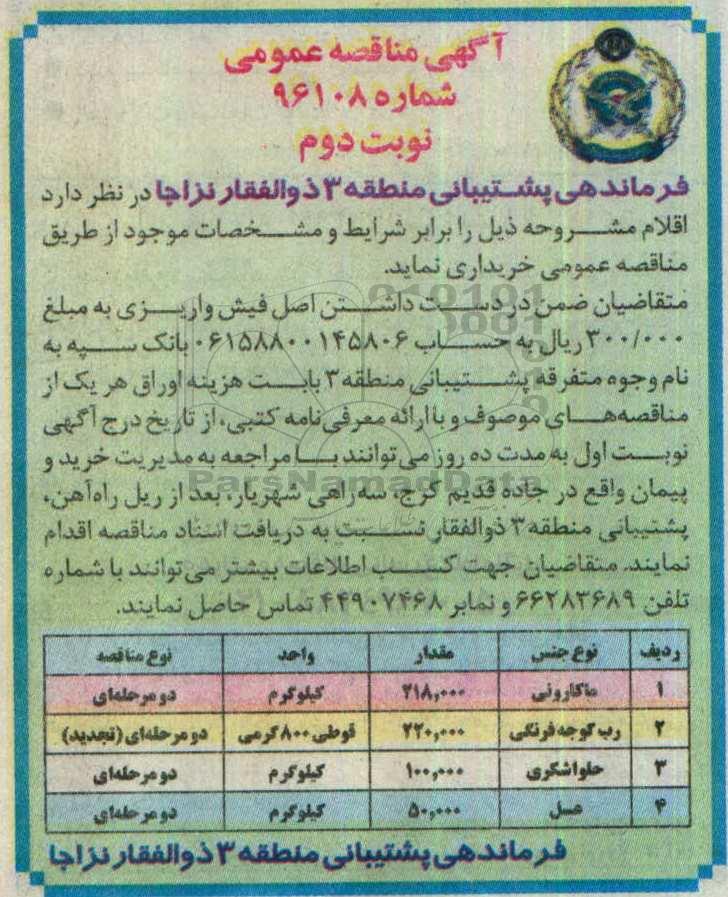 آگهی مناقصه عمومی
شماره ۹۶۱۰۸
نوبت دوم
فرماندهی پشتیبانی منطقه ۳ ذوالفقار نزاجا در نظر دارد
اقلام مشروحه ذیل را برابر شرایط و مشخصات موجود از طریق
مناقصه عمومی خریداری نماید.
متقاضیان ضمن در دست داشتن اصل فیش واریزی به مبلغ
۳۰۰/۰۰۰ ریال به حساب ۰۶۱۵۸۸۰۰۱۴۵۸۰۶ بانک سپه به
نام وجوه متفرقه پشتیبانی منطقه ۳ بابت هزینه اوراق هر یک از
مناقصه‌های موصوف و با ارائه معرفی‌نامه کتبی، از تاریخ درج آگهی
نوبت اول به مدت ده روز می‌توانند با مراجعه به مدیریت خرید و
پیمان واقع در جاده قدیم کرج، سه‌راهی شهریار، بعد از ریل راه‌آهن،
پشتیبانی منطقه ۳ ذوالفقار نسبت به دریافت اسناد مناقصه اقدام
نمایند. متقاضیان جهت کسب اطلاعات بیشتر می‌توانند با شماره
تلفن ۶۶۲۸۳۶۸۹ و نمابر ۴۴۹۰۷۴۶۸ تماس حاصل نمایند.
ردیف نوع جنس مقدار واحد نوع مناقصه
۱ ماکارونی ۲۱۸,۰۰۰ کیلوگرم دو مرحله‌ای
۲ رب گوجه فرنگی ۲۲۰,۰۰۰ قوطی ۸۰۰ گرمی دو مرحله‌ای (تجدید)
۳ حلوا شکری ۱۰۰,۰۰۰ کیلوگرم دو مرحله‌ای
۴ عسل ۵۰,۰۰۰ کیلوگرم دو مرحله‌ای
فرماندهی پشتیبانی منطقه ۳ ذوالفقار نزاجا
ParsNamadData